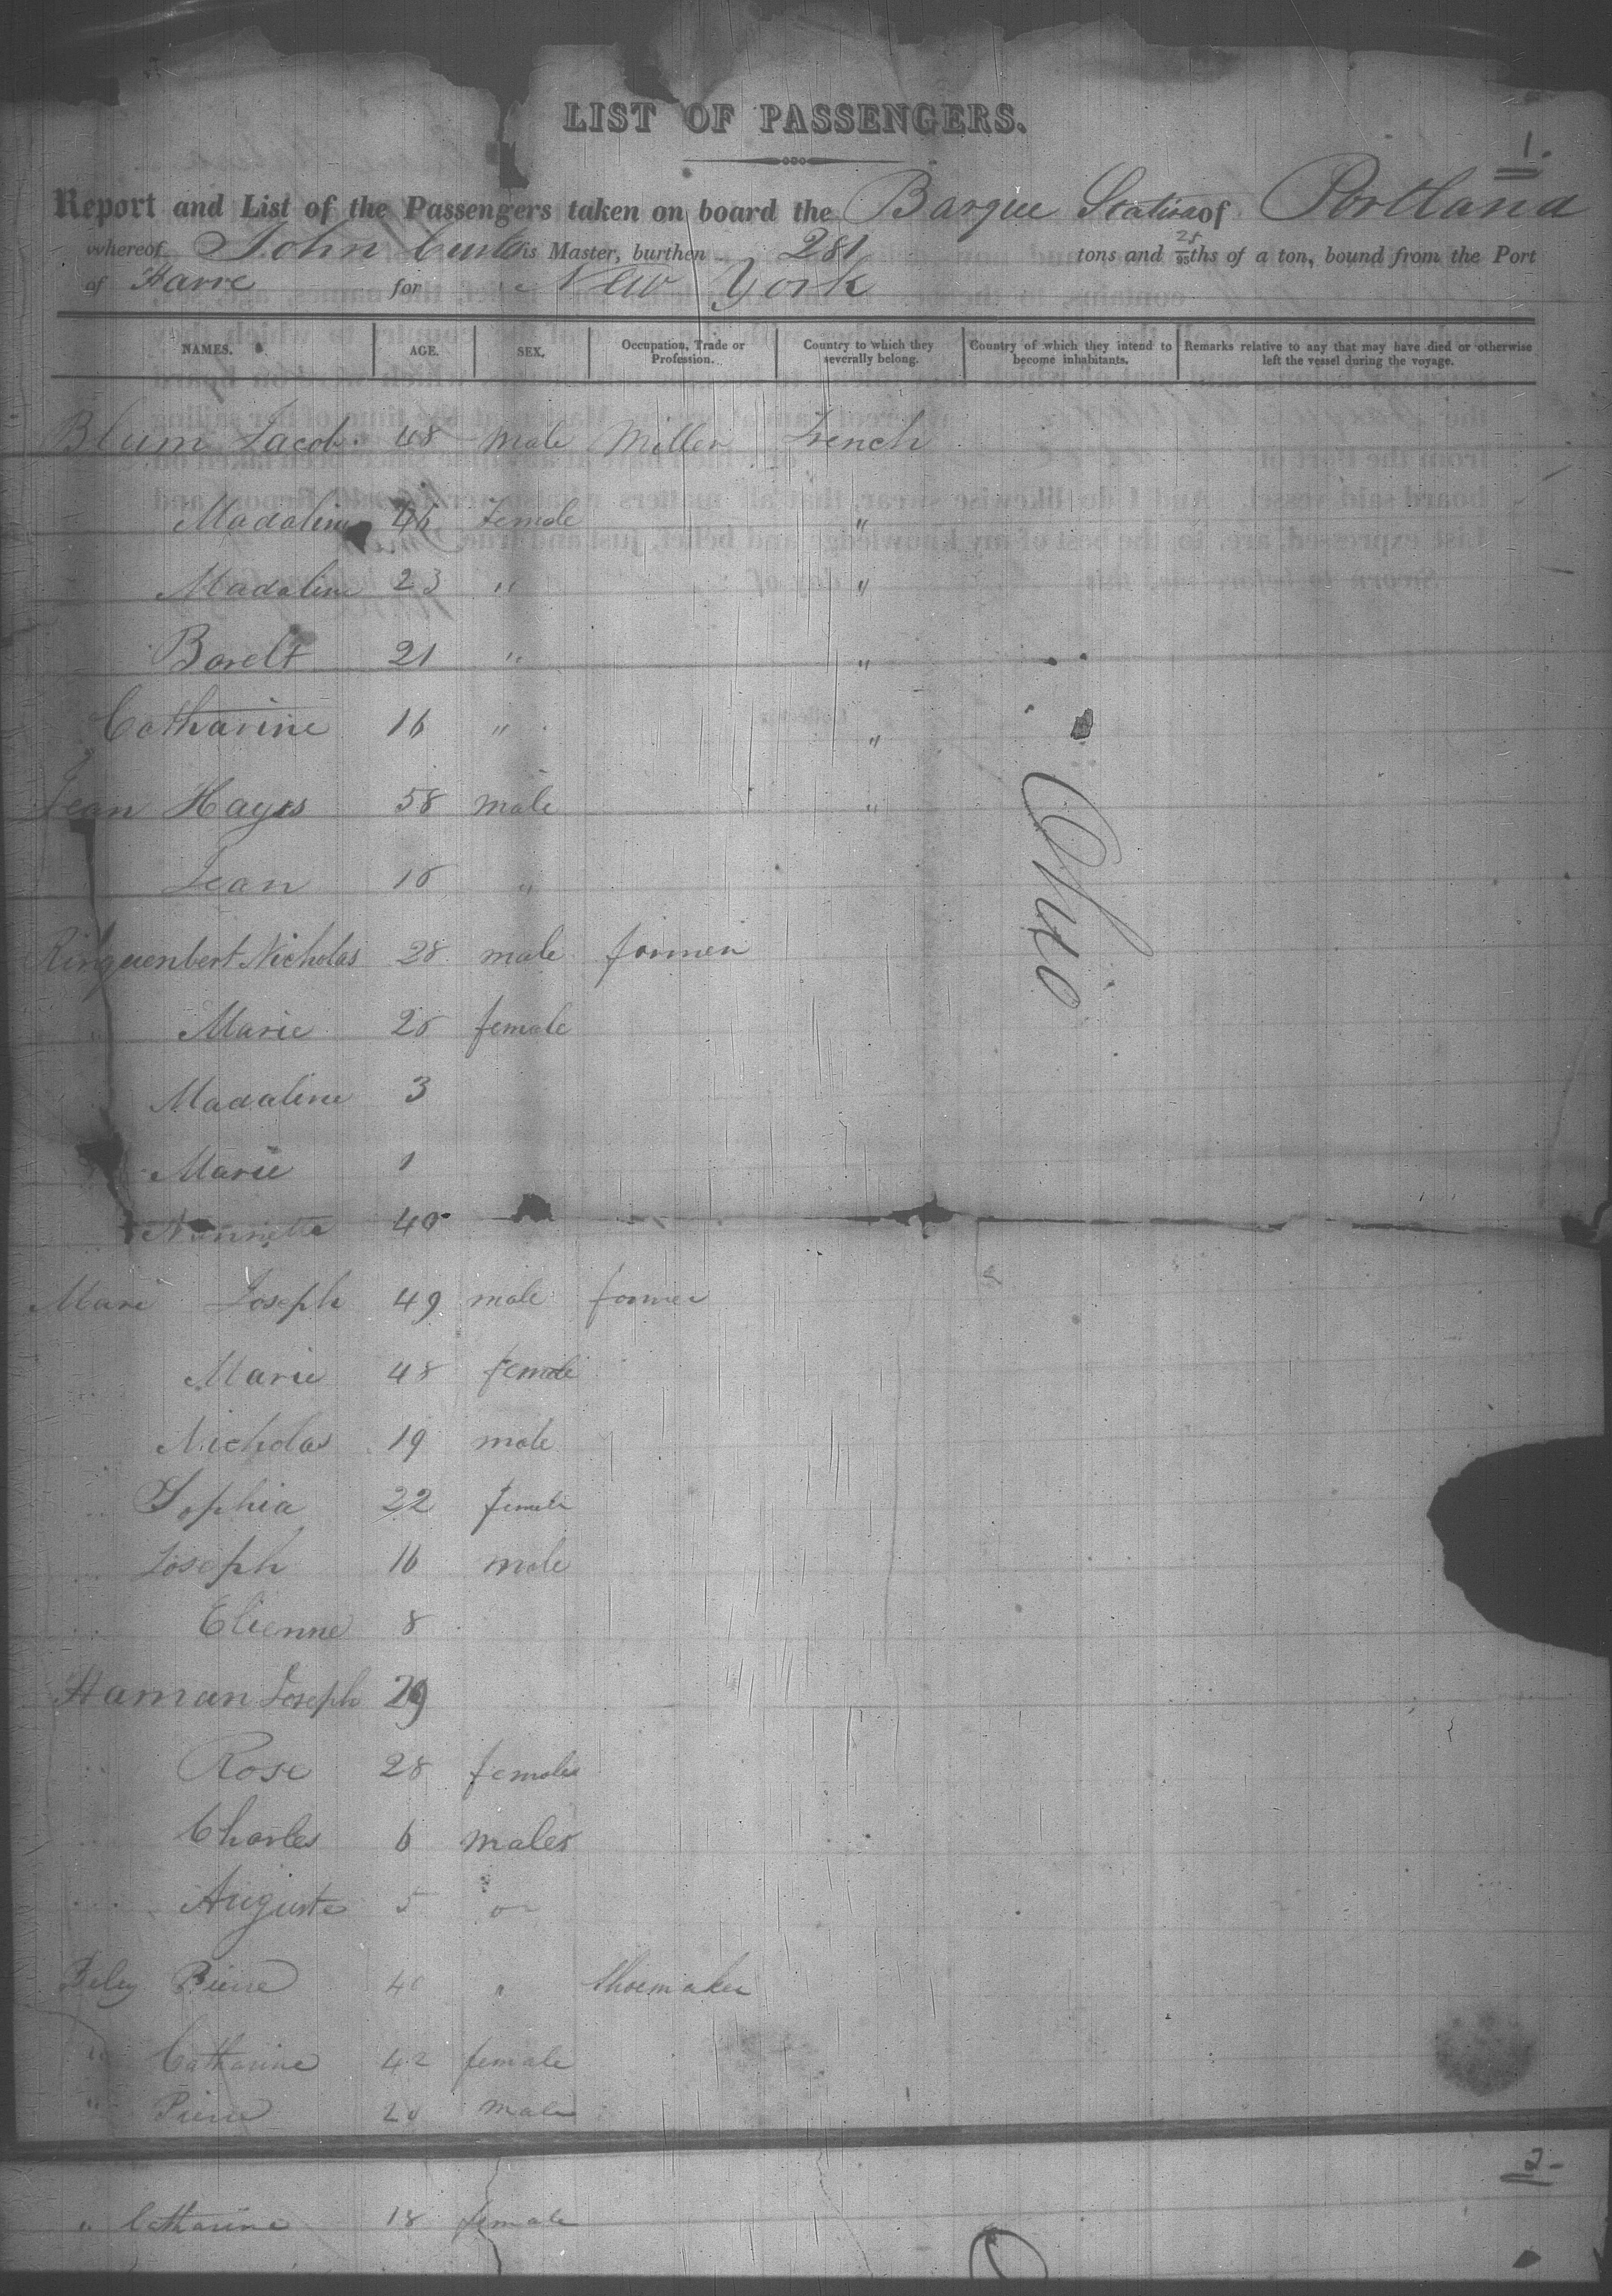 LIST OF PASSENGERS.
1
Report and List of the Passengers taken on board the Barque of Portland
whereof John is Master, burthen 281 tons and 25/95ths of a ton, bound from the Port
of Havre for New York
NAMES. AGE. SEX. Occupation, Trade or Profession. Country to which they severally belong. Country of which they intend to become inhabitants. Remarks relative to any that may have died or otherwise left the vessel during the voyage.
Blum Jacob 48 male Miller French
Madaline 46 female "
Madaline 23 " "
Barelt 21 " "
Catharine 16 " "
Jean Hayes 58 male "
Jean 18 "
Ohio
Ringuenbert Nicholas 28 male farmer
Marie 28 female
Madaline 3
Marie 1
Nannette 40
Mari Joseph 49 male farmer
Marie 48 female
Nicholas 19 male
Sophia 22 female
Joseph 16 male
Etienne 8
Haman Joseph 29
Rose 28 female
Charles 6 males
Auguste 5
Pierre 40 " Shoemaker
" Catharine 42 female
" Pierre 20 male
2
" Catharine 18 female